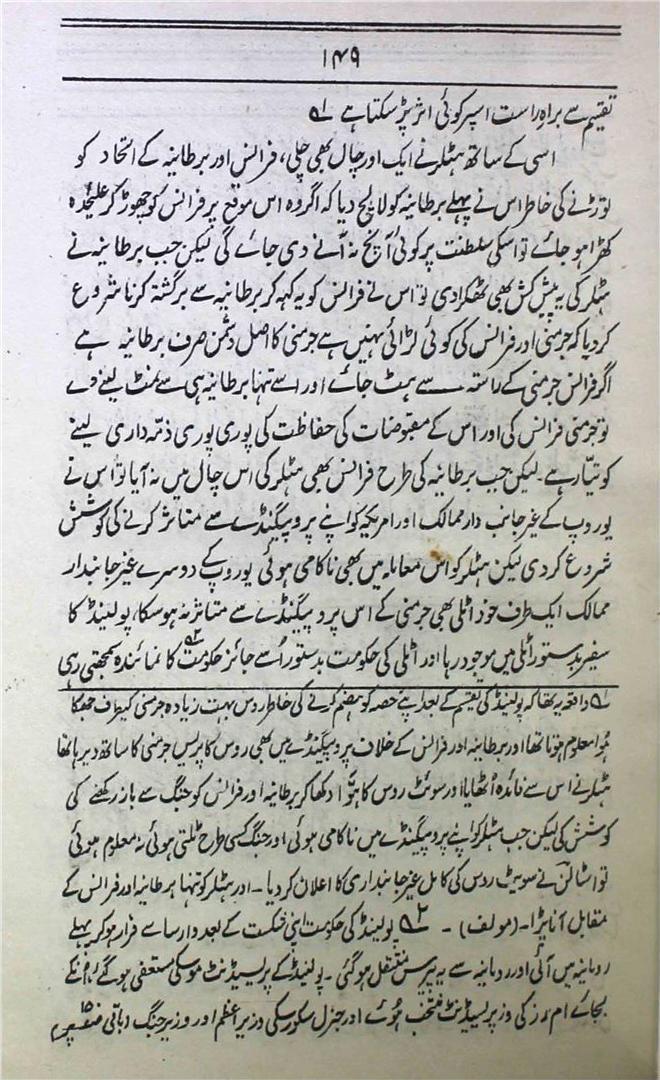 ۱۴۹
تقیم سے براہِ راست اسپر کوئی اثر پڑسکتا ہے لہ
اسی کے ساتھ ہٹلر نے ایک اور چال بھی چلی، فرانس اور برطانیہ کے اتحاد کو
توڑنے کی خاطر اس نے پہلے برطانیہ کو لالچ دیا کہ اگر وہ اس موقع پر فرانس کو چھوڑ کر علیٰحدہ
کھڑا ہو جائے تو اسکی سلطنت پر کوئی آنچ نہ آنے دی جائے گی لیکن جب برطانیہ نے
ہٹلر کی یہ پیش کش بھی ٹھکرا دی تو اس نے فرانس کو یہ کہہ کر برطانیہ سے برگشتہ کرنا شروع
کر دیا کہ جرمنی اور فرانس کی کوئی لڑائی نہیں ہے جرمنی کا اصل دشمن صرف برطانیہ ہے
اگر فرانس جرمنی کے راستہ سے ہٹ جائے اور اسے تنہا برطانیہ ہی سے نمٹ لینے دے
تو جرمنی فرانس کی اور اس کے مقبوضات کی حفاظت کی پوری پوری ذمّہ داری لینے
کو تیّار ہے۔ لیکن جب برطانیہ کی طرح فرانس بھی ہٹلر کی اس چال میں نہ آیا تو اس نے
یوروپ کے غیر جانب دار ممالک اور امریکہ کو اپنے پروپیگنڈے سے متاثر کرنے کی کوشش
شروع کر دی لیکن ہٹلر کو اس معاملہ میں بھی ناکامی ہوئی یوروپ کے دوسرے غیر جانبدار
ممالک ایک طرف خود اٹلی بھی جرمنی کے اس پروپیگنڈے سے متاثر نہ ہوسکا، پولینڈ کا
سفیر بدستور اٹلی میں موجود رہا اور اٹلی کی حکومت بدستور اُسے جائز حکومت کا نمائندہ سمجھتی رہی
لہ واقعہ یہ تھا کہ پولینڈ کی تقیم کے بعد اپنے حصہ کو ہضم کرنے کی خاطر روس بہت زیادہ جرمنی کیطرف جھکا
ہُوا معلوم ہوتا تھا اور برطانیہ اور فرانس کے خلاف پروپیگنڈے میں بھی روس کا پریس جرمنی کا ساتھ دے رہا تھا
ہٹلر نے اس سے فائدہ اُٹھایا اور سوئٹ روس کا ہوّا دکھا کر برطانیہ اور فرانس کو جنگ سے باز رکھنے کی
کوشش کی لیکن جب ہٹلر کو اپنے پروپیگنڈے میں ناکامی ہوئی اور جنگ کسی طرح ٹلتی ہوئی نہ معلوم ہوئی
تو اسٹالن نے سویٹ روس کی کامل غیر جانبداری کا اعلان کر دیا۔ اور ہٹلر کو تنہا برطانیہ اور فرانس کے
مقابل آنا پڑا۔ (مولف) ۔ ۲؎ پولینڈ کی حکومت اپنی شکست کے بعد وارسا سے فرار ہو کر پہلے
رومانیہ میں آئی اور رومانیہ سے یہ پیرس منتقل ہوگئی۔ پولینڈ کے پریسیڈنٹ موسکی مستعفی ہو گئے انکے
بجائے ام رز کی وز پریسیڈنٹ منتخب ہُوئے اور جنرل سکورسکی وزیر اعظم اور وزیر جنگ (باقی صفحہ پر)